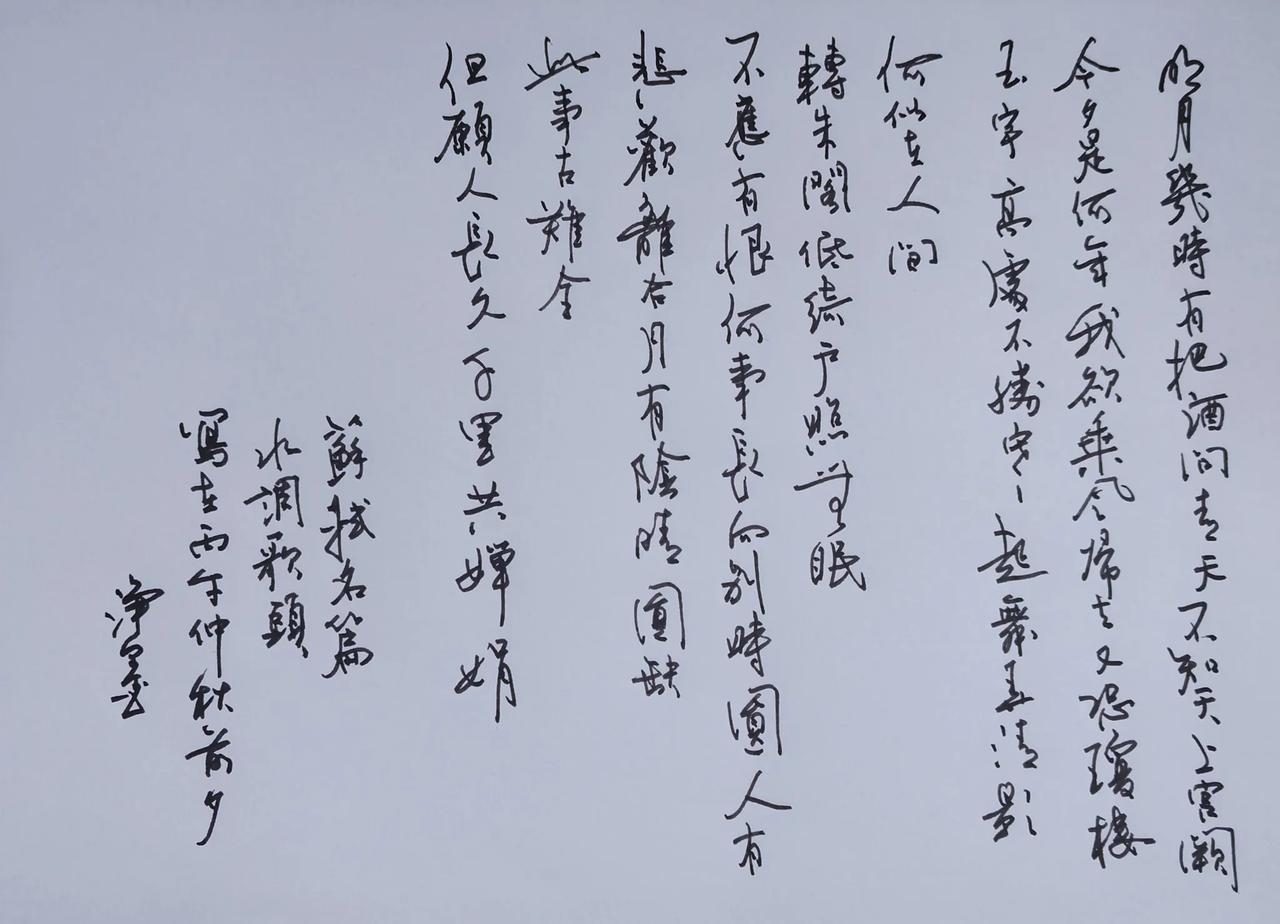 明月幾時有把酒問青天不知天上宮闕
今夕是何年我欲乘风歸去又恐瓊樓
玉宇高處不勝寒起舞弄清影
何似在人间
轉朱閣低綺户照無眠
不應有恨何事長向别時圓人有
悲歡離合月有陰晴圓缺
此事古難全
但願人長久千里共嬋娟
蘇軾名篇
水調歌頭
寫在丙午仲秋前夕
淨墨